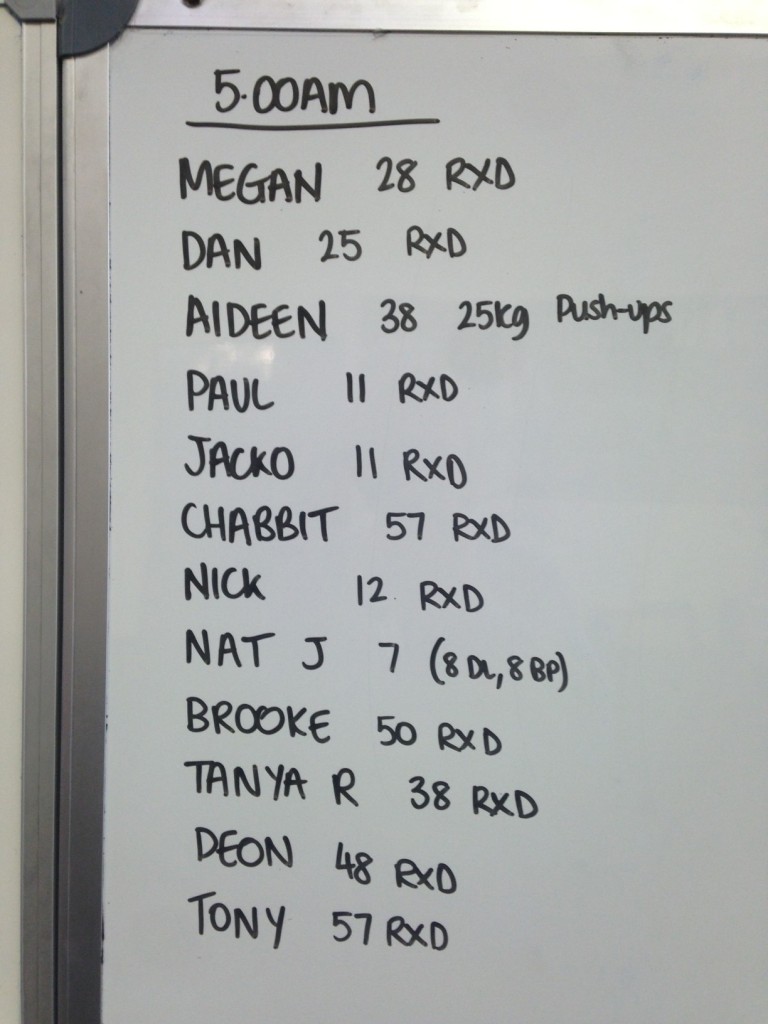 5.00AM
MEGAN 28 RXD
DAN 25 RXD
AIDEEN 38 25kg Push-ups
PAUL 11 RXD
JACKO 11 RXD
CHABBIT 57 RXD
NICK 12 RXD
NAT J 7 (8 DL, 8 BP)
BROOKE 50 RXD
TANYA R 38 RXD
DEON 48 RXD
TONY 57 RXD